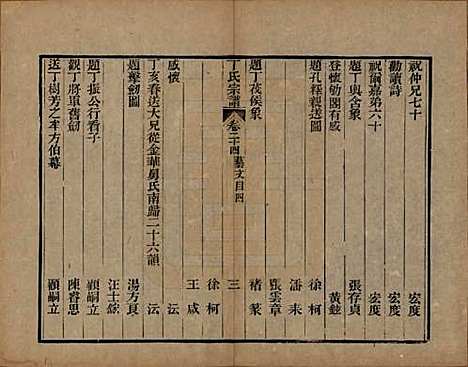 祝仲兄七十 宏度
勸讀詩 宏度
祝爾嘉弟六十 宏度
題丁與含象 張存貞
登懷勖閣有感 黃鉉
題孔釋親送圖 徐柯
潘耒
張雲章
題丁茂侯象 褚篆
丁氏宗譜 卷二十四 藝文目四 三
徐柯
王咸
感懷 沄
丁亥春送大兄從金華舅氏南歸二十六韻 沄
題擊劒圖 湯方夏
題丁振公行看子 汪士鋐
顧嗣立
觀丁將軍舊劒 陳睿思
送丁樹芳之年方伯幕 顧嗣立